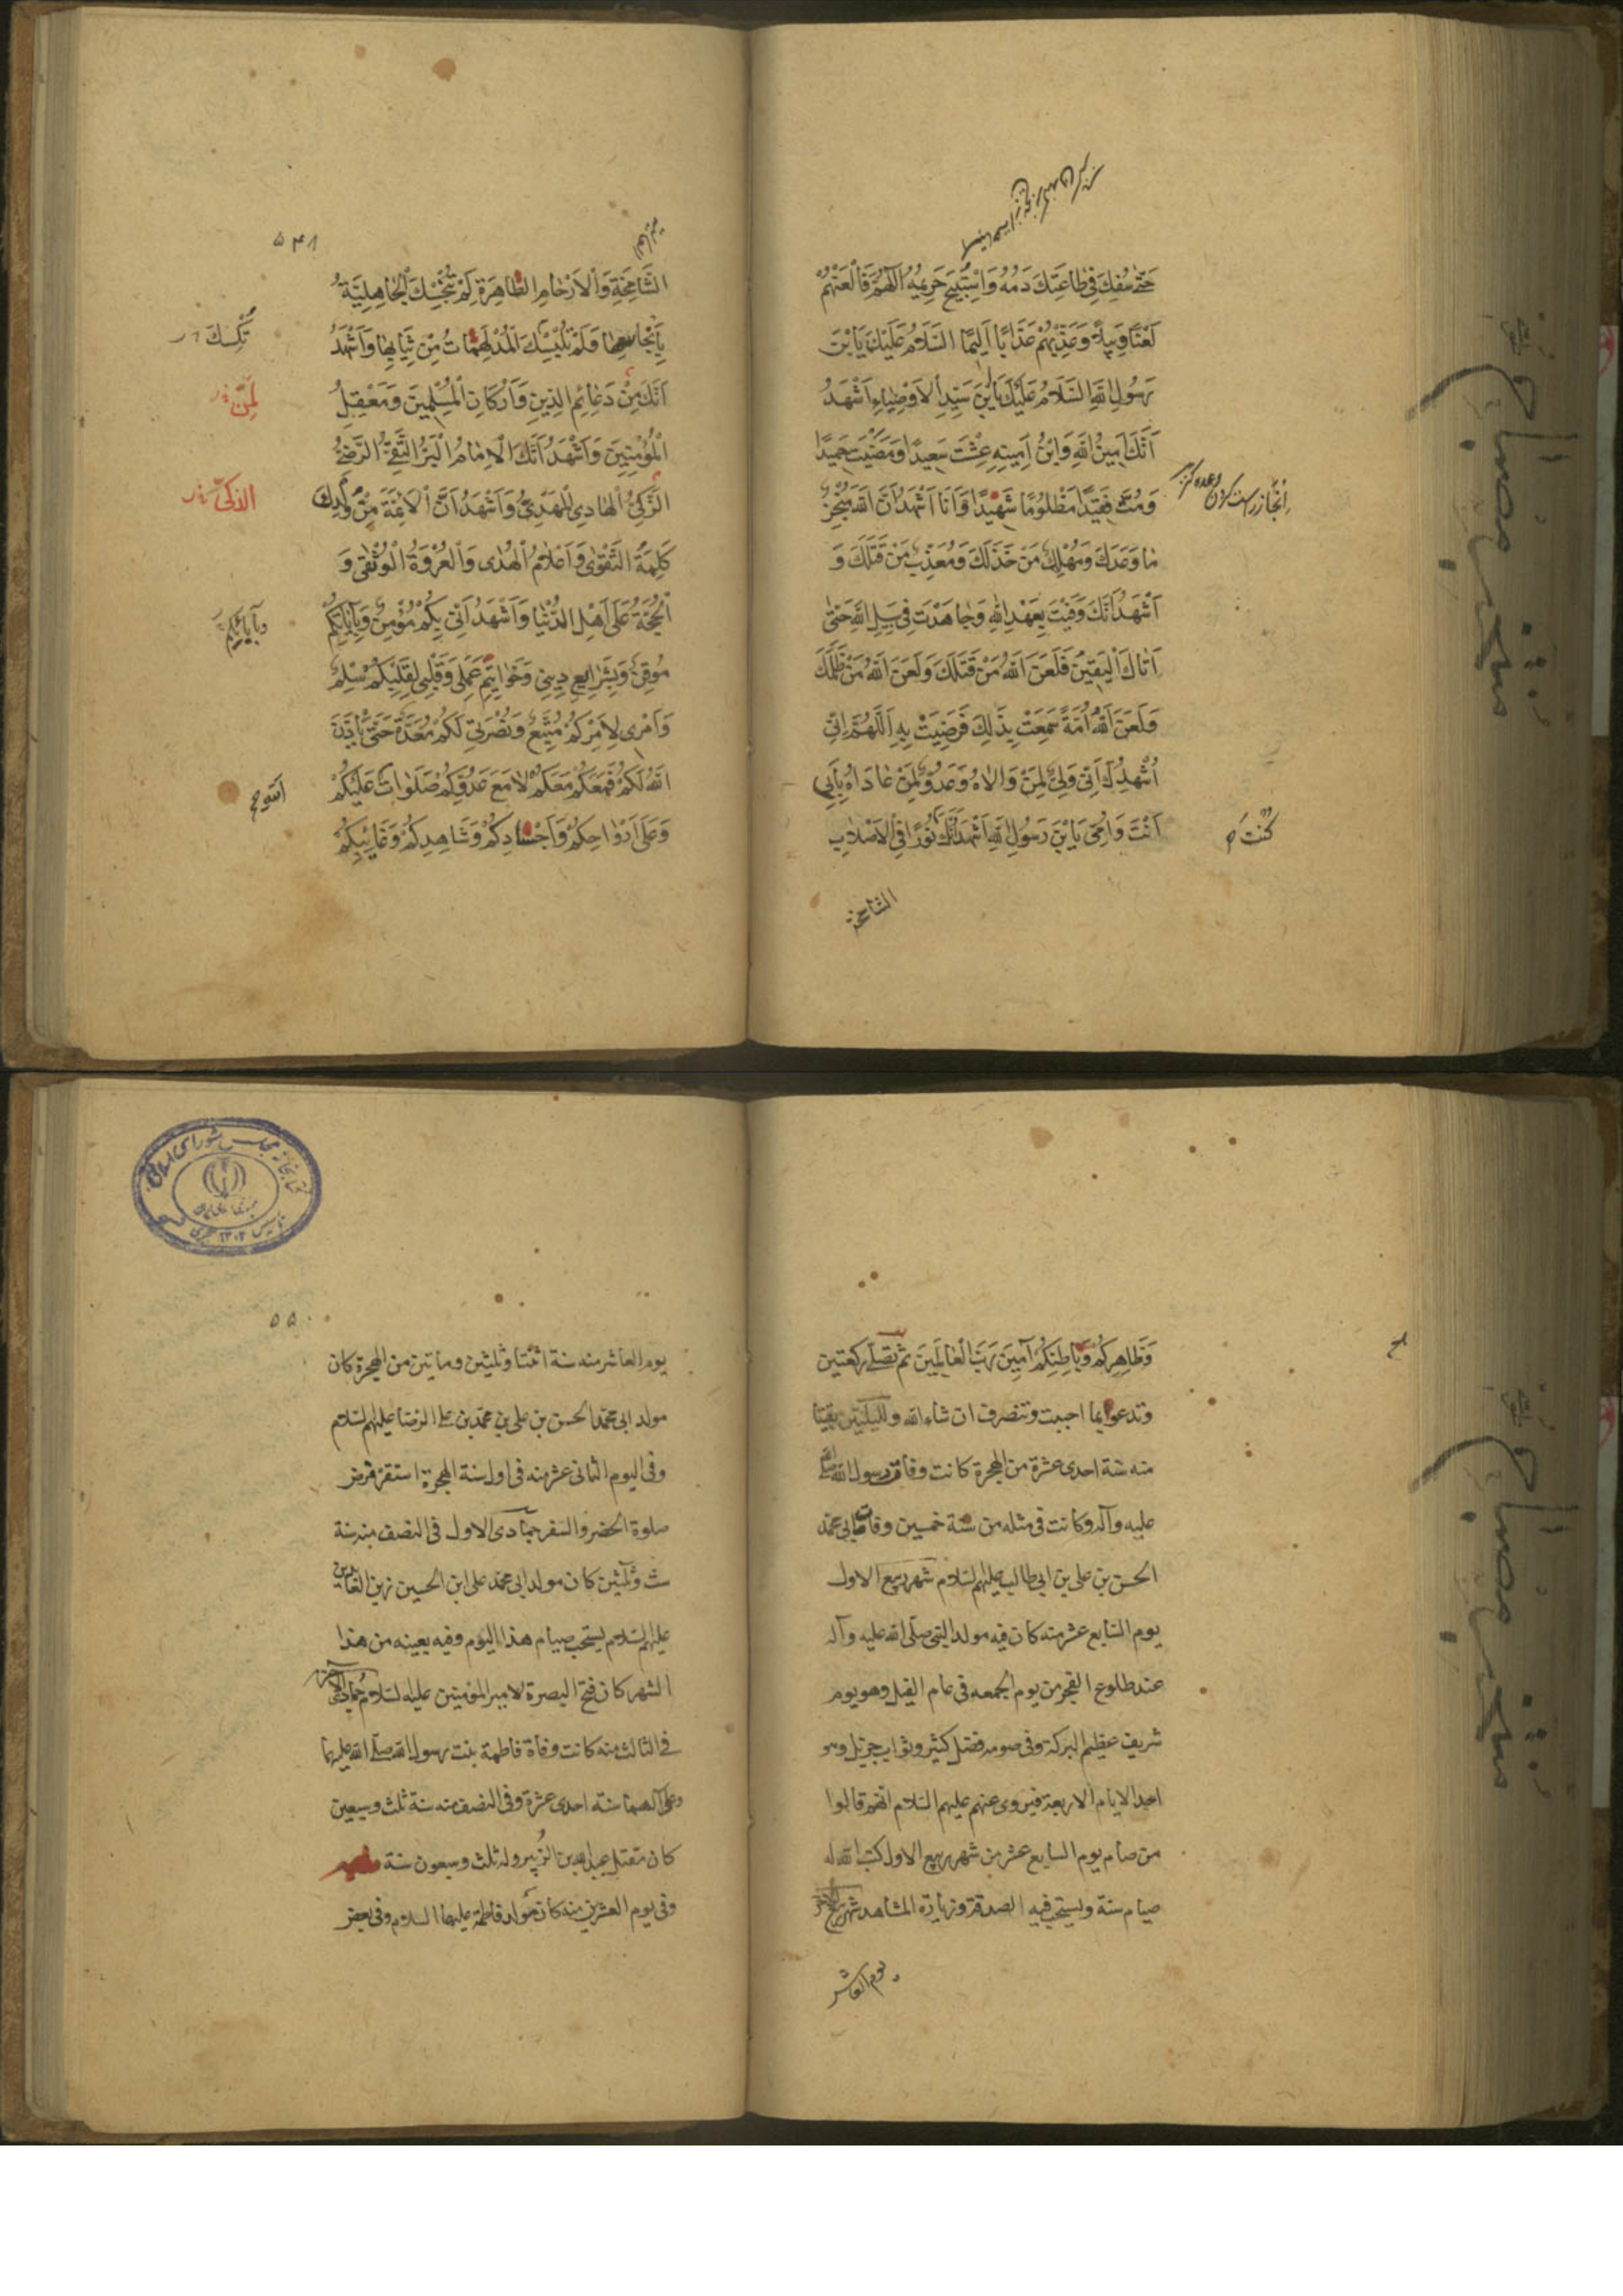 حَتّىٰ سُفِكَ فِي طَاعَتِكَ دَمُهُ وَاسْتُبِيحَ حَرِيمُهُ اَللّٰهُمَّ فَالْعَنْهُمْ
لَعْنًا وَبِيلًا وَعَذِّبْهُمْ عَذَابًا اَلِيمًا اَلسَّلَامُ عَلَيْكَ يَا بْنَ
رَسُولِ اللّٰهِ اَلسَّلَامُ عَلَيْكَ يَا بْنَ سَيِّدِ الْاَوْصِيَاءِ اَشْهَدُ
اَنَّكَ اَمِينُ اللّٰهِ وَابْنُ اَمِينِهِ عِشْتَ سَعِيدًا وَمَضَيْتَ حَمِيدًا
وَمُتَّ فَقِيدًا مَظْلُومًا شَهِيدًا وَاَنَا اَشْهَدُ اَنَّ اللّٰهَ مُنْجِزٌ
اِنْجَاز راست کردن وعده
مَا وَعَدَكَ وَمُهْلِكٌ مَنْ خَذَلَكَ وَمُعَذِّبٌ مَنْ قَتَلَكَ وَ
اَشْهَدُ اَنَّكَ وَفَيْتَ بِعَهْدِ اللّٰهِ وَجَاهَدْتَ فِي سَبِيلِ اللّٰهِ حَتّىٰ
اَتَاكَ الْيَقِينُ فَلَعَنَ اللّٰهُ مَنْ قَتَلَكَ وَلَعَنَ اللّٰهُ مَنْ ظَلَمَكَ
وَلَعَنَ اللّٰهُ اُمَّةً سَمِعَتْ بِذٰلِكَ فَرَضِيَتْ بِهِ اَللّٰهُمَّ اِنِّي
اُشْهِدُكَ اَنِّي وَلِيٌّ لِمَنْ وَالَاهُ وَعَدُوٌّ لِمَنْ عَادَاهُ بِاَبِي
اَنْتَ وَاُمِّي يَا بْنَ رَسُولِ اللّٰهِ اَشْهَدُ اَنَّكَ نُورًا فِي الْاَصْلَابِ
كُنْتَ
الشامخة
۵۴۸
الشَّامِخَةِ وَالْاَرْحَامِ الطَّاهِرَةِ لَمْ تُنَجِّسْكَ الْجَاهِلِيَّةُ
بِاَنْجَاسِهَا وَلَمْ تُلْبِسْكَ الْمُدْلَهِمَّاتُ مِنْ ثِيَابِهَا وَاَشْهَدُ
اَنَّكَ مِنْ دَعَائِمِ الدِّينِ وَاَرْكَانِ الْمُسْلِمِينَ وَمَعْقِلِ
لَمِنْ
الْمُؤْمِنِينَ وَاَشْهَدُ اَنَّكَ الْاِمَامُ الْبَرُّ التَّقِيُّ الرَّضِيُّ
الزَّكِيُّ الْهَادِي الْمَهْدِيُّ وَاَشْهَدُ اَنَّ الْاَئِمَّةَ مِنْ وُلْدِكَ
الذكىّ
كَلِمَةُ التَّقْوٰى وَاَعْلَامُ الْهُدٰى وَالْعُرْوَةُ الْوُثْقٰى وَ
الْحُجَّةُ عَلٰى اَهْلِ الدُّنْيَا وَاَشْهَدُ اَنِّي بِكُمْ مُؤْمِنٌ وَبِاِيَابِكُمْ
وبآبائكم
مُوقِنٌ وَبِشَرَايِعِ دِينِي وَخَوَاتِيمِ عَمَلِي وَقَلْبِي لِقَلْبِكُمْ سِلْمٌ
وَاَمْرِي لِاَمْرِكُمْ مُتَّبِعٌ وَنُصْرَتِي لَكُمْ مُعَدَّةٌ حَتّىٰ يَأْذَنَ
اللّٰهُ لَكُمْ فَمَعَكُمْ مَعَكُمْ لَا مَعَ عَدُوِّكُمْ صَلَوَاتُ عَلَيْكُمْ
الله
وَعَلٰى اَرْوَاحِكُمْ وَاَجْسَادِكُمْ وَشَاهِدِكُمْ وَغَائِبِكُمْ
وَظَاهِرِكُمْ وَبَاطِنِكُمْ آمِينَ رَبَّ الْعَالَمِينَ ثم تصلّى ركعتين
وتدعو بما احببت وتنصرف ان شاء الله ولليلتين بقيتا
منه سنة احدى عشرة من الهجرة كانت وفاة رسول الله صلى الله
عليه وآله وكانت فى مثله من سنة خمسين وفاة ابى محمّد
الحسن بن على بن ابى طالب عليهم السّلام شهر ربيع الاول
يوم السّابع عشر منه كان فيه مولد النبى صلّى الله عليه وآله
عند طلوع الفجر من يوم الجمعه فى عام الفيل وهو يوم
شريف عظيم البركة وفى صومه فضل كثير وثواب جزيل وهو
احد الايام الاربعة فيروى عنهم عليهم السّلام انهم قالوا
من صام يوم السابع عشر من شهر ربيع الاول كتب الله له
صيام سنة ويستحبّ فيه الصدقة وزيارة المشاهد شهر ربيع الآخر
يوم العاشر
۵۵۰
يوم العاشر منه سنة اثنتا وثلثين وماتين من الهجرة كان
مولد ابى محمّد الحسن بن على بن محمّد بن على الرضا عليهم السّلام
وفى اليوم الثانى عشر منه فى اول سنة الهجرة استقر فرض
صلوة الحضر والسفر جمادى الاول فى النصف منه سنة
ست وثلثين كان مولد ابى محمّد على ابن الحسين زين العابدين
عليهم السّلام يستحبّ صيام هذا اليوم وفيه بعينه من هذا
الشهر كان فتح البصرة لامير المؤمنين عليه السّلام جمادى الآخر
فى الثالث منه كانت وفاة فاطمة بنت رسول الله صلّى الله عليهما
وعلى آلهما سنة احدى عشرة وفى النصف منه سنة ثلث وسبعين
كان مقتل عبدالله بن الزُبير وله ثلث وسبعون سنة
وفى يوم العشرين منه كان مولد فاطمة عليها السلام وفى بعض
كتابخانه مجلس شورای اسلامی